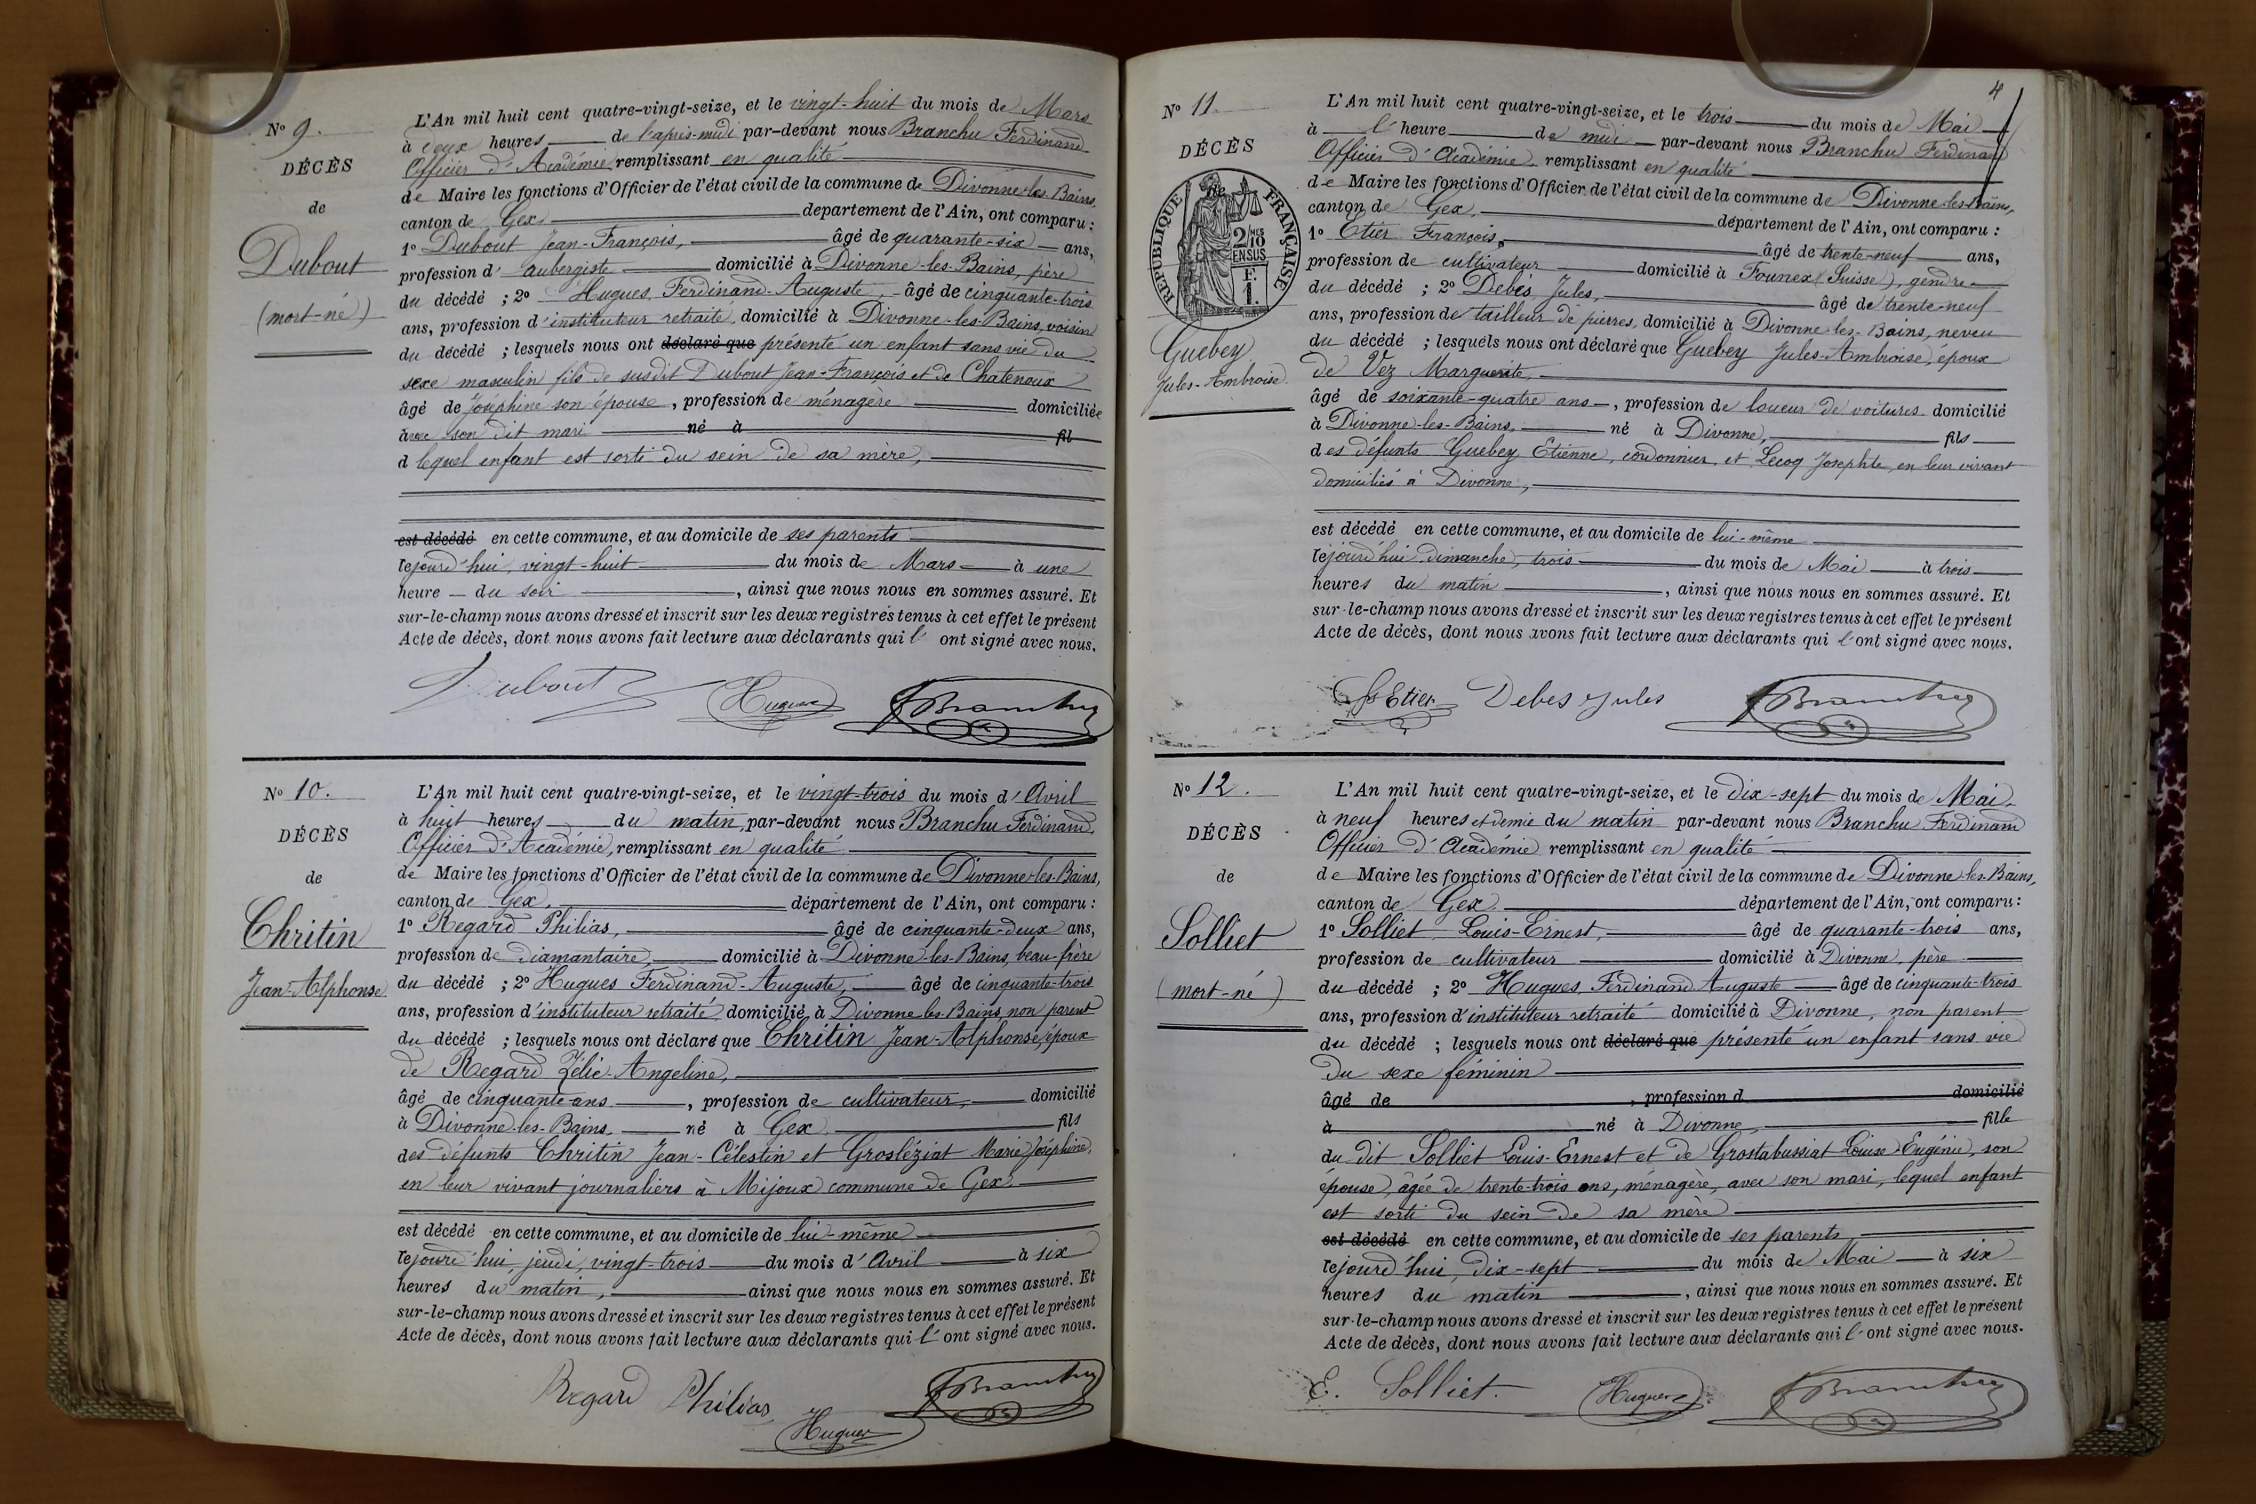 No 9.
DÉCÈS
de
Dubout
(mort-né)
L'An mil huit cent quatre-vingt-seize, et le vingt-huit du mois de Mars
à deux heures de l'après-midi par-devant nous Branchu Ferdinand
Officier d'Académie remplissant en qualité
de Maire les fonctions d'Officier de l'état civil de la commune de Divonne-les-Bains,
canton de Gex département de l'Ain, ont comparu :
1o Dubout Jean-François, âgé de quarante-six ans,
profession d'aubergiste domicilié à Divonne-les-Bains, père
du décédé ; 2o Hugues Ferdinand-Auguste âgé de cinquante-trois
ans, profession d'instituteur retraité, domicilié à Divonne-les-Bains, voisin
du décédé ; lesquels nous ont déclaré que présenté un enfant sans vie du
sexe masculin fils de susdit Dubout Jean-François et de Chatenoux
âgé de Joséphine son épouse, profession de ménagère domiciliée
avec son dit mari né à fil
d lequel enfant est sorti du sein de sa mère,
est décédé en cette commune, et au domicile de ses parents
lejourd'hui, vingt-huit du mois de Mars à une
heure du soir, ainsi que nous nous en sommes assuré. Et
sur-le-champ nous avons dressé et inscrit sur les deux registres tenus à cet effet le présent
Acte de décès, dont nous avons fait lecture aux déclarants qui l'ont signé avec nous.
Dubout Hugues FBranchu
No 10.
DÉCÈS
de
Chritin
Jean-Alphonse
L'An mil huit cent quatre-vingt-seize, et le vingt-trois du mois d'Avril
à huit heures du matin, par-devant nous Branchu Ferdinand,
Officier d'Académie, remplissant en qualité
de Maire les fonctions d'Officier de l'état civil de la commune de Divonne-les-Bains,
canton de Gex, département de l'Ain, ont comparu :
1o Regard Philias, âgé de cinquante-deux ans,
profession de diamantaire, domicilié à Divonne-les-Bains, beau-frère
du décédé ; 2o Hugues Ferdinand-Auguste, âgé de cinquante-trois
ans, profession d'instituteur retraité domicilié à Divonne-les-Bains, non parent
du décédé ; lesquels nous ont déclaré que Chritin Jean-Alphonse, époux
de Regard Zélie-Angeline,
âgé de cinquante ans, profession de cultivateur, domicilié
à Divonne-les-Bains né à Gex fils
des défunts Chritin Jean-Célestin et Grosléziat Marie Joséphine,
en leur vivant journaliers à Mijoux commune de Gex
est décédé en cette commune, et au domicile de lui-même
lejourd'hui, jeudi, vingt-trois du mois d'Avril à six
heures du matin, ainsi que nous nous en sommes assuré. Et
sur-le-champ nous avons dressé et inscrit sur les deux registres tenus à cet effet le présent
Acte de décès, dont nous avons fait lecture aux déclarants qui l'ont signé avec nous.
Regard Philias Hugues FBranchu
4
No 11.
DÉCÈS
de
RÉPUBLIQUE FRANÇAISE
2/10 EN SUS
F.
1.
Guebey
Jules-Ambroise
L'An mil huit cent quatre-vingt-seize, et le trois du mois de Mai
à l'heure de midi par-devant nous Branchu Ferdinand
Officier d'Académie remplissant en qualité
de Maire les fonctions d'Officier de l'état civil de la commune de Divonne-les-Bains,
canton de Gex, département de l'Ain, ont comparu :
1o Etier François, âgé de trente-neuf ans,
profession de cultivateur domicilié à Founex (Suisse), gendre
du décédé ; 2o Debès Jules, âgé de trente-neuf
ans, profession de tailleur de pierres, domicilié à Divonne-les-Bains, neveu
du décédé ; lesquels nous ont déclaré que Guebey Jules-Ambroise, époux
de Vez Marguerite,
âgé de soixante-quatre ans, profession de loueur de voitures domicilié
à Divonne-les-Bains, né à Divonne, fils
des défunts Guebey Etienne, cordonnier, et Lecoq Josephte, en leur vivant
domiciliés à Divonne,
est décédé en cette commune, et au domicile de lui-même
lejourd'hui dimanche, trois du mois de Mai à trois
heures du matin, ainsi que nous nous en sommes assuré. Et
sur-le-champ nous avons dressé et inscrit sur les deux registres tenus à cet effet le présent
Acte de décès, dont nous avons fait lecture aux déclarants qui l'ont signé avec nous.
Fs Etier Debes Jules FBranchu
No 12.
DÉCÈS
de
Solliet
(mort-né)
L'An mil huit cent quatre-vingt-seize, et le dix-sept du mois de Mai
à neuf heures et demie du matin par-devant nous Branchu Ferdinand
Officier d'Académie remplissant en qualité
de Maire les fonctions d'Officier de l'état civil de la commune de Divonne-les-Bains,
canton de Gex département de l'Ain, ont comparu :
1o Solliet Louis-Ernest, âgé de quarante-trois ans,
profession de cultivateur domicilié à Divonne, père
du décédé ; 2o Hugues Ferdinand Auguste âgé de cinquante-trois
ans, profession d'instituteur retraité domicilié à Divonne, non parent
du décédé ; lesquels nous ont déclaré que présenté un enfant sans vie
du sexe féminin
âgé de , profession d domicilié
à né à Divonne, fille
du dit Solliet Louis-Ernest et de Grostabussiat Louise Eugénie, son
épouse, âgée de trente-trois ans, ménagère, avec son mari, lequel enfant
est sorti du sein de sa mère
est décédé en cette commune, et au domicile de ses parents
lejourd'hui, dix-sept du mois de Mai à six
heures du matin, ainsi que nous nous en sommes assuré. Et
sur-le-champ nous avons dressé et inscrit sur les deux registres tenus à cet effet le présent
Acte de décès, dont nous avons fait lecture aux déclarants qui l'ont signé avec nous.
E. Solliet. Hugues FBranchu